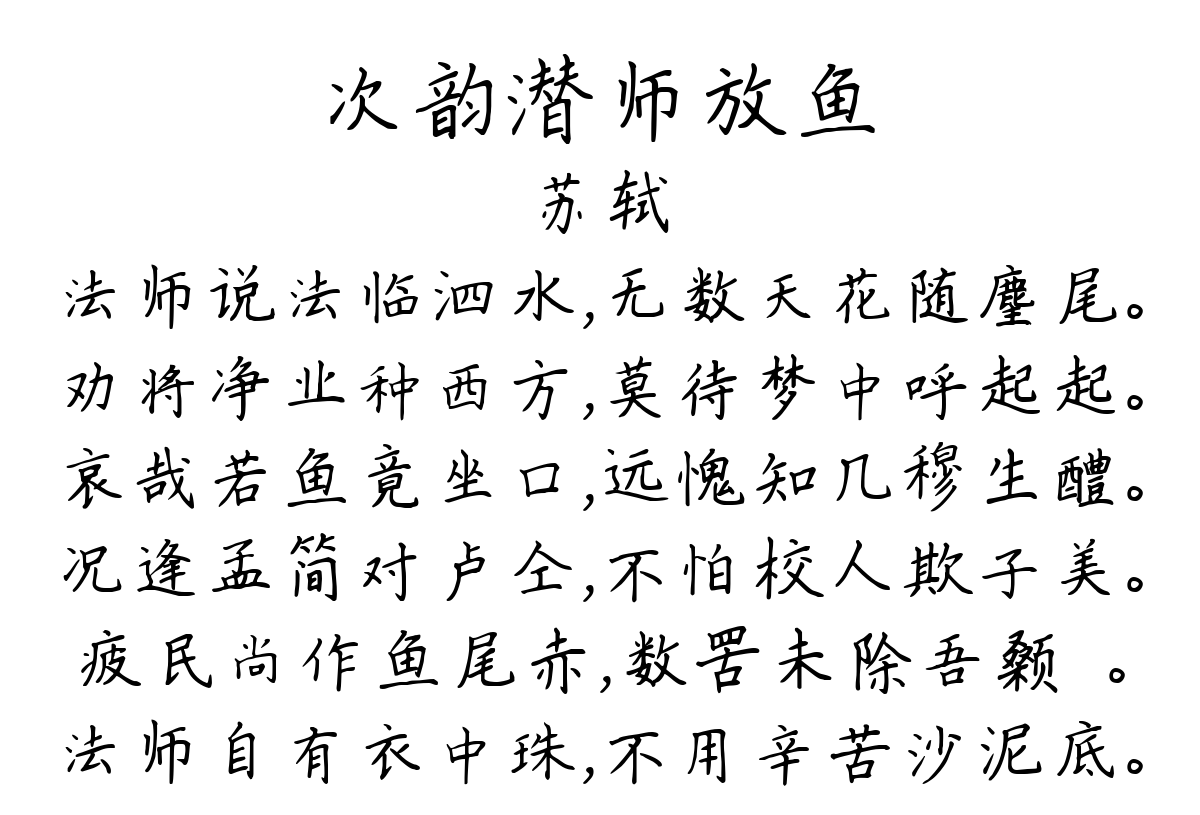 次韵潜师放鱼
苏轼
法师说法临泗水,无数天花随麈尾。
劝将净业种西方,莫待梦中呼起起。
哀哉若鱼竟坐口,远愧知几穆生醴。
况逢孟简对卢仝,不怕校人欺子美。
疲民尚作鱼尾赤,数罟未除吾颡 。
法师自有衣中珠,不用辛苦沙泥底。